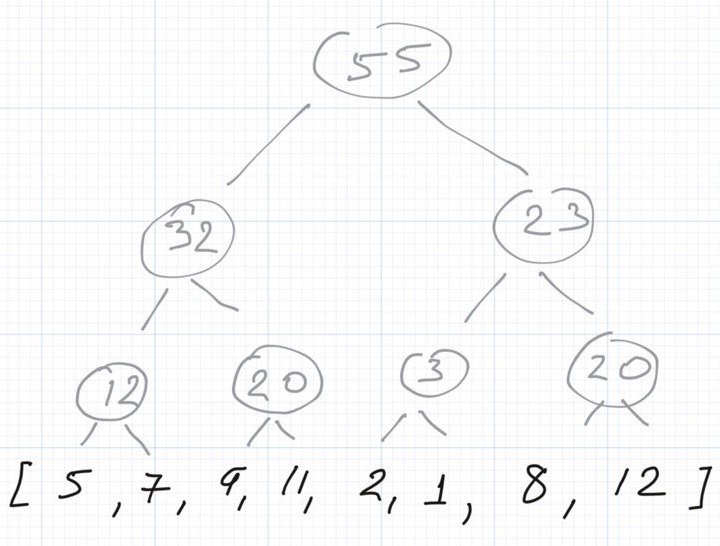 55
32 23
12 20 3 20
[ 5 , 7 , 9, 11, 2, 1 , 8 , 12 ]